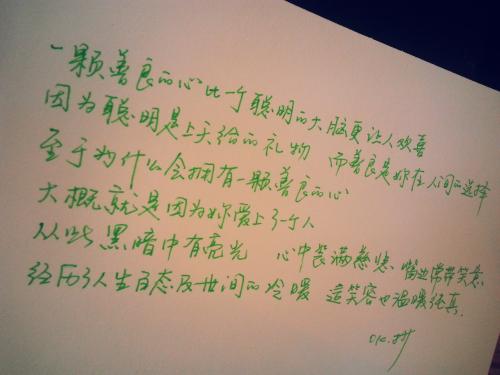 一颗善良的心比一个聪明的大脑更让人欢喜
因为聪明是上天给的礼物 而善良是妳在人间的选择
至于为什么会拥有一颗善良的心
大概就是因为妳爱上了一个人
从此黑暗中有亮光 心中装满慈悲 嘴边常带笑意
经历了人生百态及世间的冷暖 這笑容也温暖纯真.